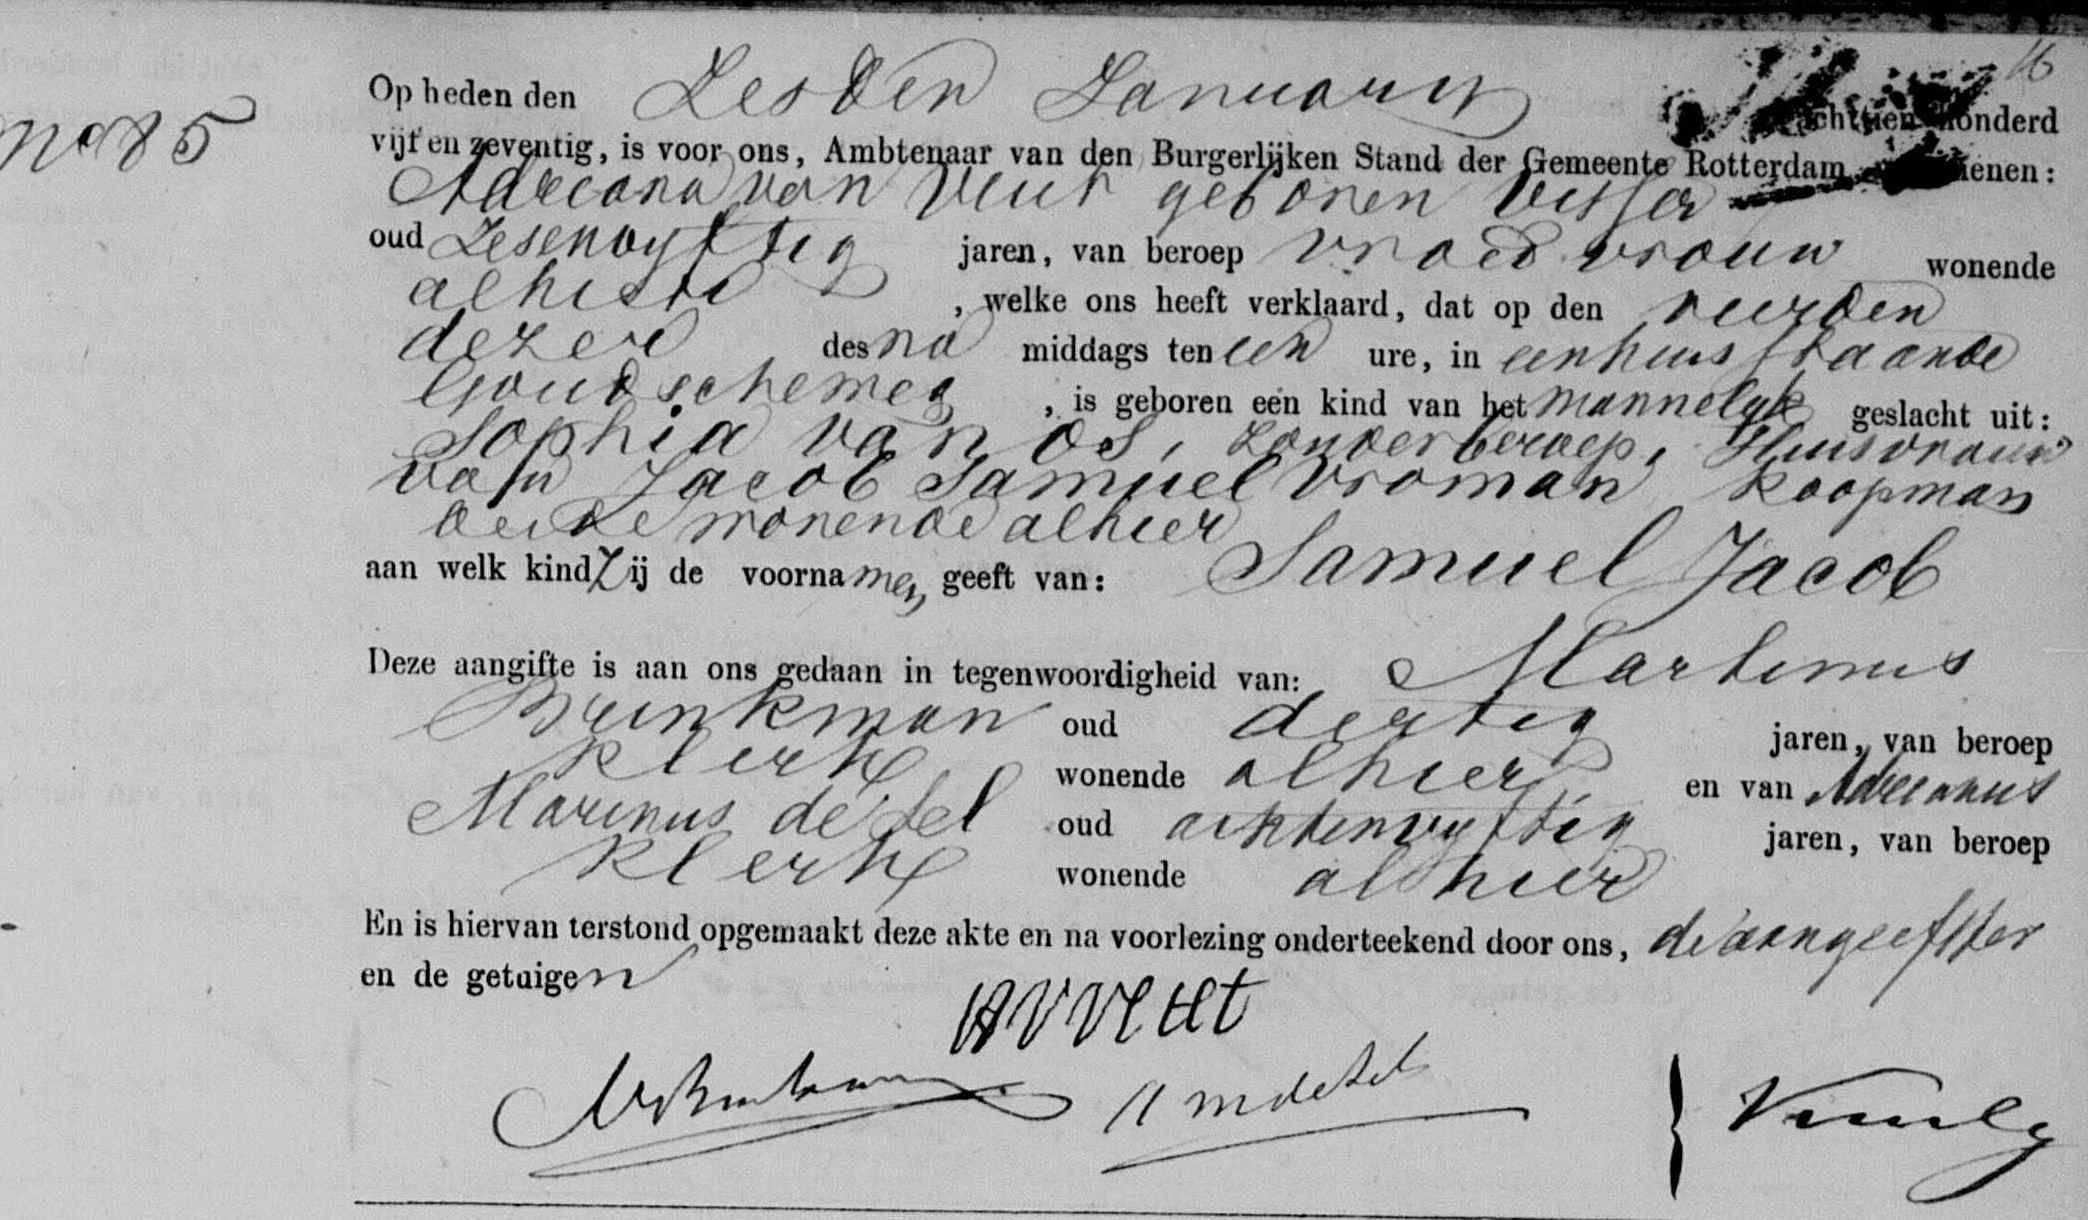 16
No 85
Op heden den Zesden Januarij achttien honderd
vijf en zeventig, is voor ons, Ambtenaar van den Burgerlijken Stand der Gemeente Rotterdam, verschenen:
Adreana van Vliet geboren Visser
oud Zesenvyftig jaren, van beroep vroedvrouw wonende
alhier , welke ons heeft verklaard, dat op den vierden
dezer des na middags ten een ure, in een huis staande
Goudscheweg , is geboren een kind van het mannelyk geslacht uit:
Sophia van Os, zonder beroep, Huisvrouw
van Jacob Samuel Vroman Koopman
beide wonende alhier
aan welk kind Zij de voornamen geeft van: Samuel Jacob
Deze aangifte is aan ons gedaan in tegenwoordigheid van: Martinus
Brinkman oud dertig jaren, van beroep
klerk wonende alhier, en van Adreanus
Marinus de Jel oud achtenvyftig jaren, van beroep
klerk wonende alhier
En is hiervan terstond opgemaakt deze akte en na voorlezing onderteekend door ons, de aangeefster
en de getuigen
AV Vliet